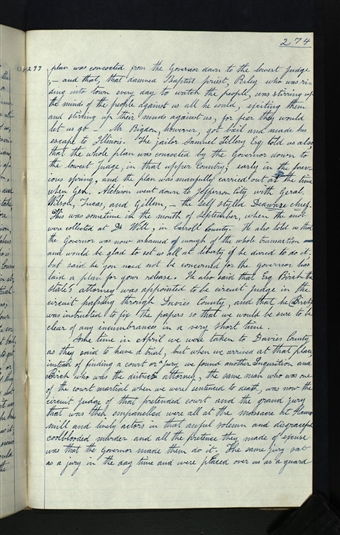 274
plan was concocted from the Governor down to the lowest Judge
– and that, that damned Baptist priest, Riley who was ri-
ding into town every day to watch the people, was stirring up
the mind of the people against us all he could, exciting them
and stirring up their minds against us, for fear they would
let us go – Mr Rigdon, however, got bail and made his
escape to Illinois. The jailor Samuel Tillery Esq told us also
that the whole plan was concocted by the Governor down to
the lowest judge, in that upper Country, early in the previ-
ous spring, and the plan was manfully carried out at the time
when Gen. Atchison went down to Jefferson City with Genl.
Wilson, Lucas, and Gillem, – the self styled Deaware chief.
This was sometime in the month of September, when the mob
were collected at De Witt, in Carroll County. He also told us that
the Governor was now ashamed of enough of the whole transaction
and would be glad to set us all at liberty if he dared to do it;
but said he you need not be concerned for the governor has
laid a plan for your release. He also said that Esq Birch the
state's attorney was appointed to be circuit judge in the
circuit passing through Davies County, and that he (Birch)
was instructed to fix the papers so that we would be sure to be
clear of any encumbrances in a very short time.
Some time in April we were taken to Davies County
as they said to have a trial, but when we arrived at that place
instead of finding a court or jury we found another Inquisition and
Birch who was the district attorney, the same man who was one
of the court martial when we were sentenced to death, was now the
circuit judge of that pretended court and the grand jury
that was then empannelled were all at the massacre at Hauns
mill and lively actors in that awful solemn and disgraceful
coolblooded murder and all the pretense they made of excuse
was that the Governor made them do it. The same jury sat
as a jury in the day time and were placed over us as a guard